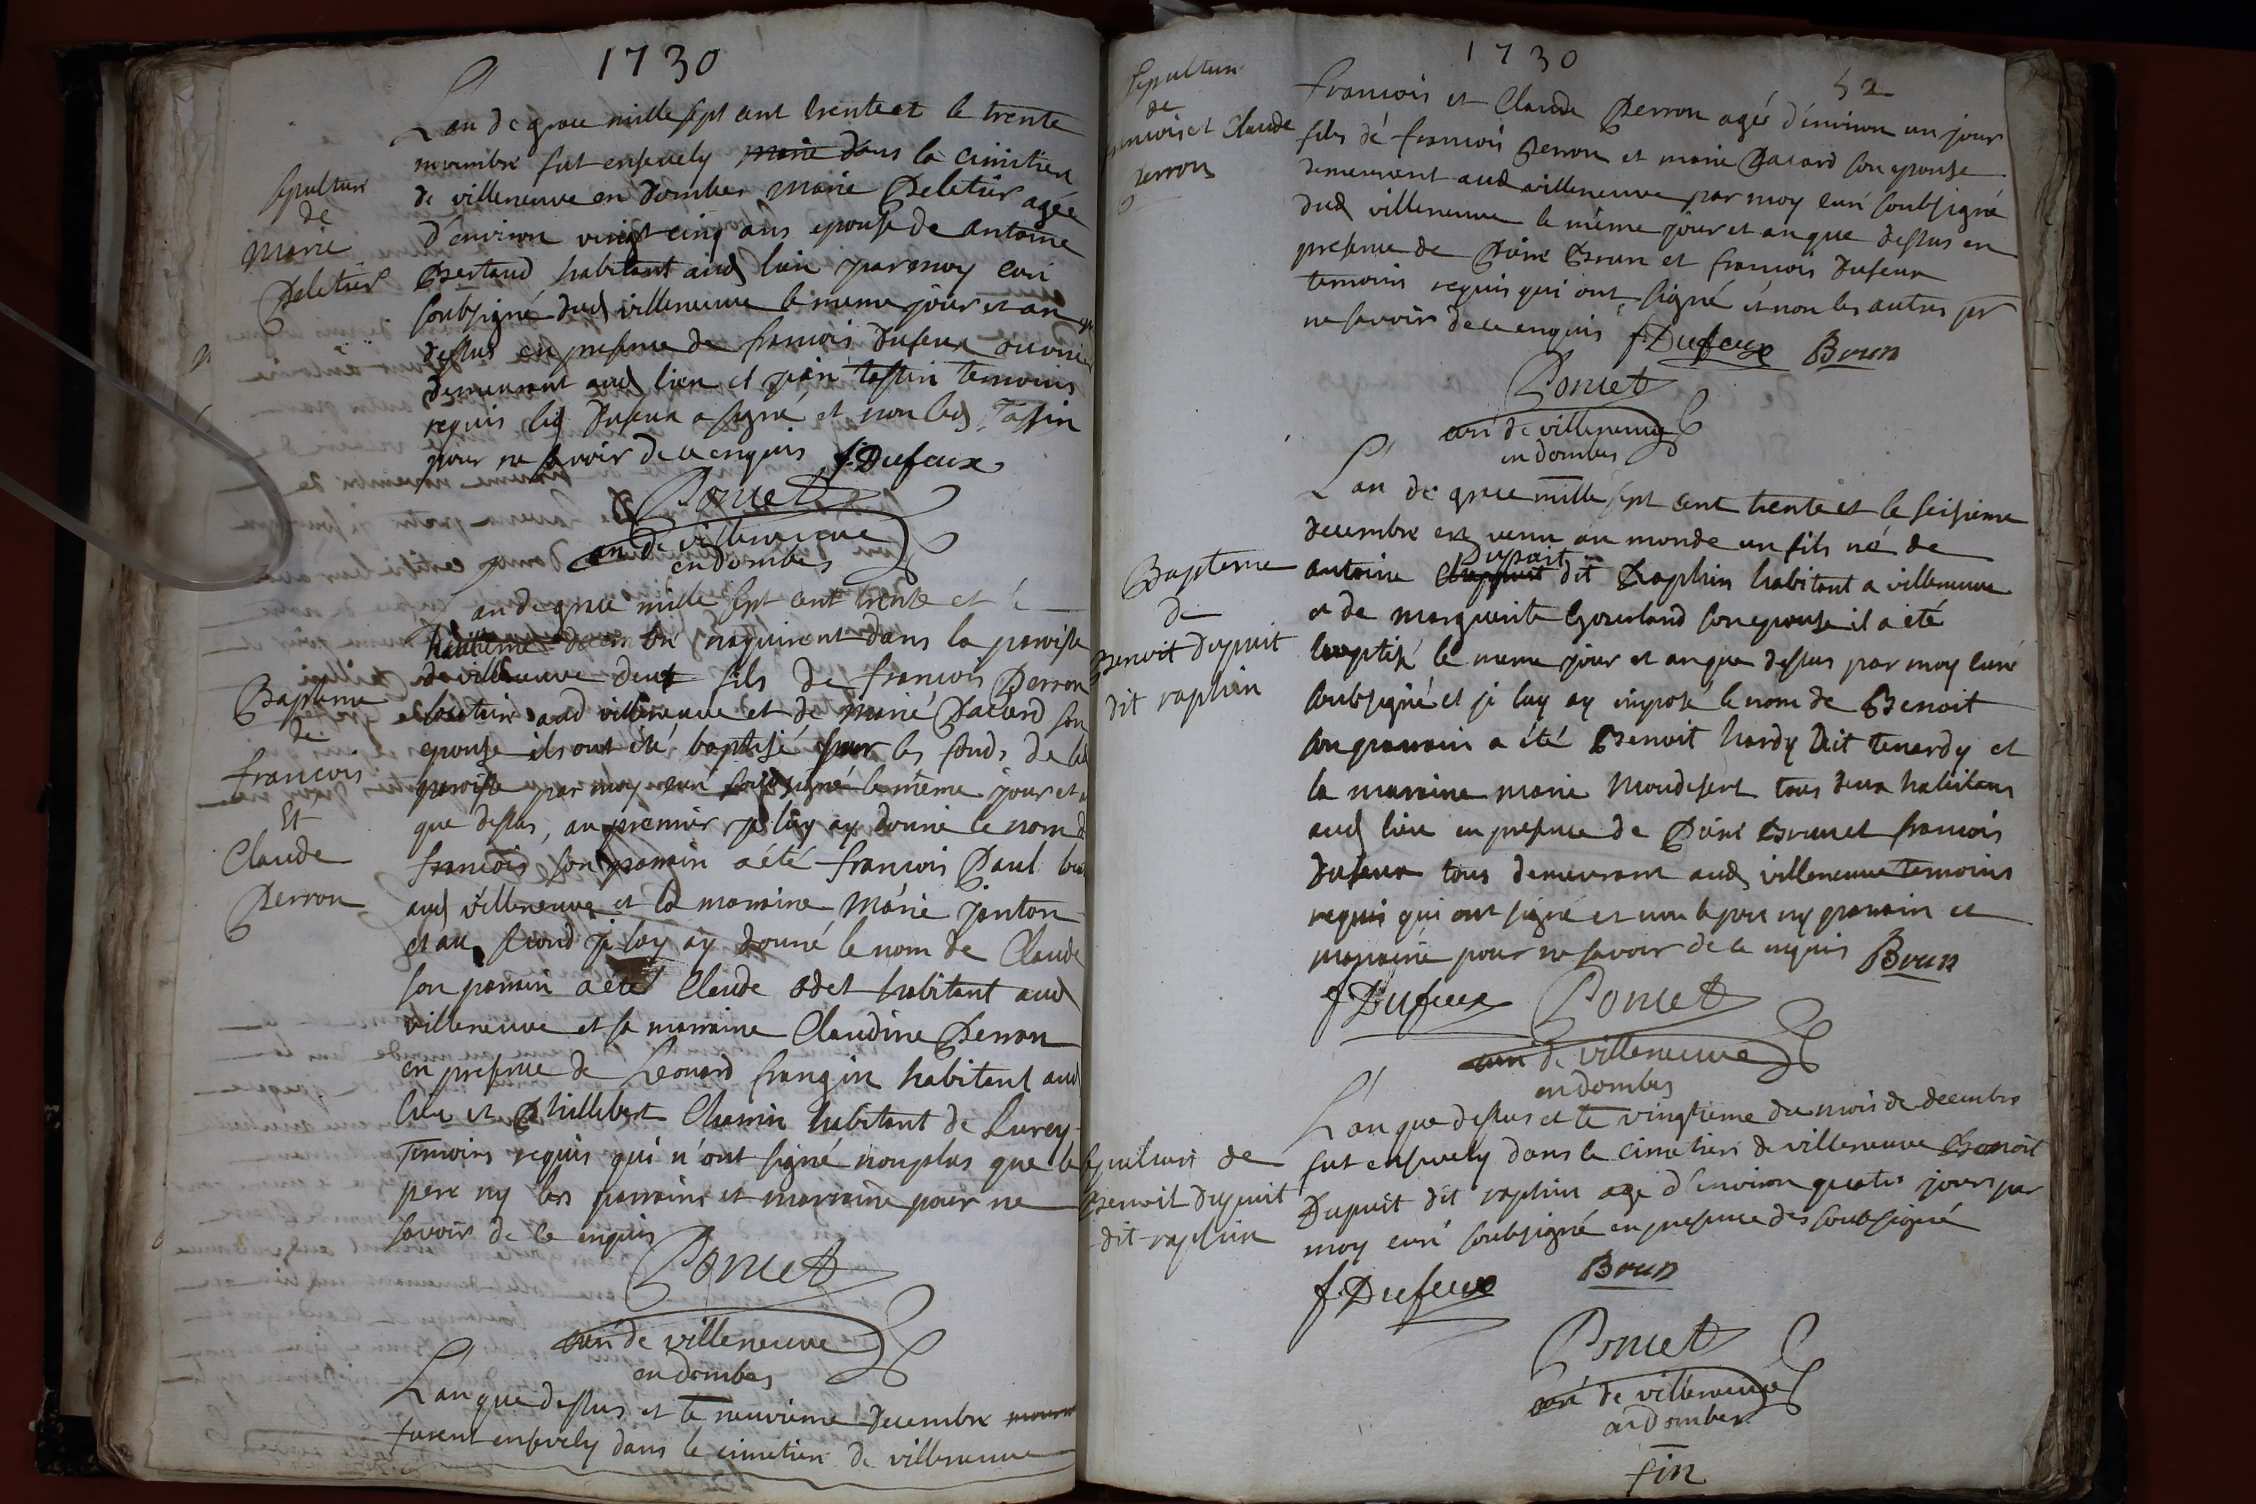 1730
L'an de grace mille sept cent trente et le trente
novembre fut ensevely marie dans la cimitiere
Sepulture
de
Marie
Peletier
de villeneuve en Dombes Marie Peletier agée
d'environ vingt cinq ans epouse de Antoine
Bertaud habitant aud lieu par moy curé
soubsigné dud villeneuve le meme jour et an que
dessus en presence de francois Dufeux ouvrier
demeurant aud lieu et piere tassin temoins
requis led Dufeux a signé et non led Tassin
pour ne savoir de ce enquis f. Dufeux
Poncet
curé de villeneuve
en dombes
Bapteme
de
francois
Et
Claude
Perron
L'an de grace mille sept cent trente et le
huitieme decembre naquirent dans la paroisse
de villeneuve deux fils de francois Perron
aud villeneuve et de marie Pacard son
epouse ils ont été baptisé sur les fonds de lad
paroisse par moy curé soubsigné le même jour et an
que dessus, au premier je luy ay donné le nom de
francois son parrain a été francois Paul
aud villeneuve et la marraine Marie janton
et au second je luy ay donné le nom de Claude
son parrain a été Claude odet habitant aud
villeneuve et sa marraine Claudine Perron
en presence de Leonard frangin habitant aud
lieu et Phillibert Chemin habitant de Lurcy
temoins requis qui n'ont signé nonplus que le
pere ny les parrains et marraine pour ne
savoir de ce enquis
Poncet
curé de villeneuve
en dombes
L'an que dessus et le neuvieme decembre
furent ensevely dans le cimetiere de villeneuve
1730
52
Sepulture
de
francois et Claude
perron
francois et Claude Perron agés d'environ un jour
fils de francois Perron et marie Pacard son epouse
demeurant aud villeneuve par moy curé soubsigné
dud villeneuve le même jour et an que dessus en
presence de Piere Brun et francois Dufeux
temoins requis qui ont signé et non les autres pr
ne savoir de ce enquis f. Dufeux Brun
Poncet
curé de villeneuve
en dombes
Bapteme
de
Benoit Dupuit
dit raphin
L'an de grace mille sept cent trente et le seisieme
decembre est venu au monde un fils né de
Dupuit
antoine dit Raphin habitant a villeneuve
et de marguerite Gourland son epouse il a été
baptisé le meme jour et an que dessus par moy curé
soubsigné et je luy ay imposé le nom de Benoit
son parrain a été Benoit hardy dit tenardy et
la marraine marie Mondesert tous deux habitans
aud lieu en presence de Piere Brun et francois
Dufeux tous demeurant aud villeneuve temoins
requis qui ont signé et non le pere ny parrain et
marraine pour ne savoir de ce enquis Brun
f. Dufeux Poncet
curé de villeneuve
en dombes
Sepulture de
Benoit Dupuit
dit raphin
L'an que dessus et le vingtieme du mois de decembre
fut ensevely dans le cimetiere de villeneuve Benoit
Dupuit dit raphin agé d'environ quatre jours par
moy curé soubsigné en presence des soubsigné
f. Dufeux Brun
Poncet
curé de villeneuve
en dombes
fin